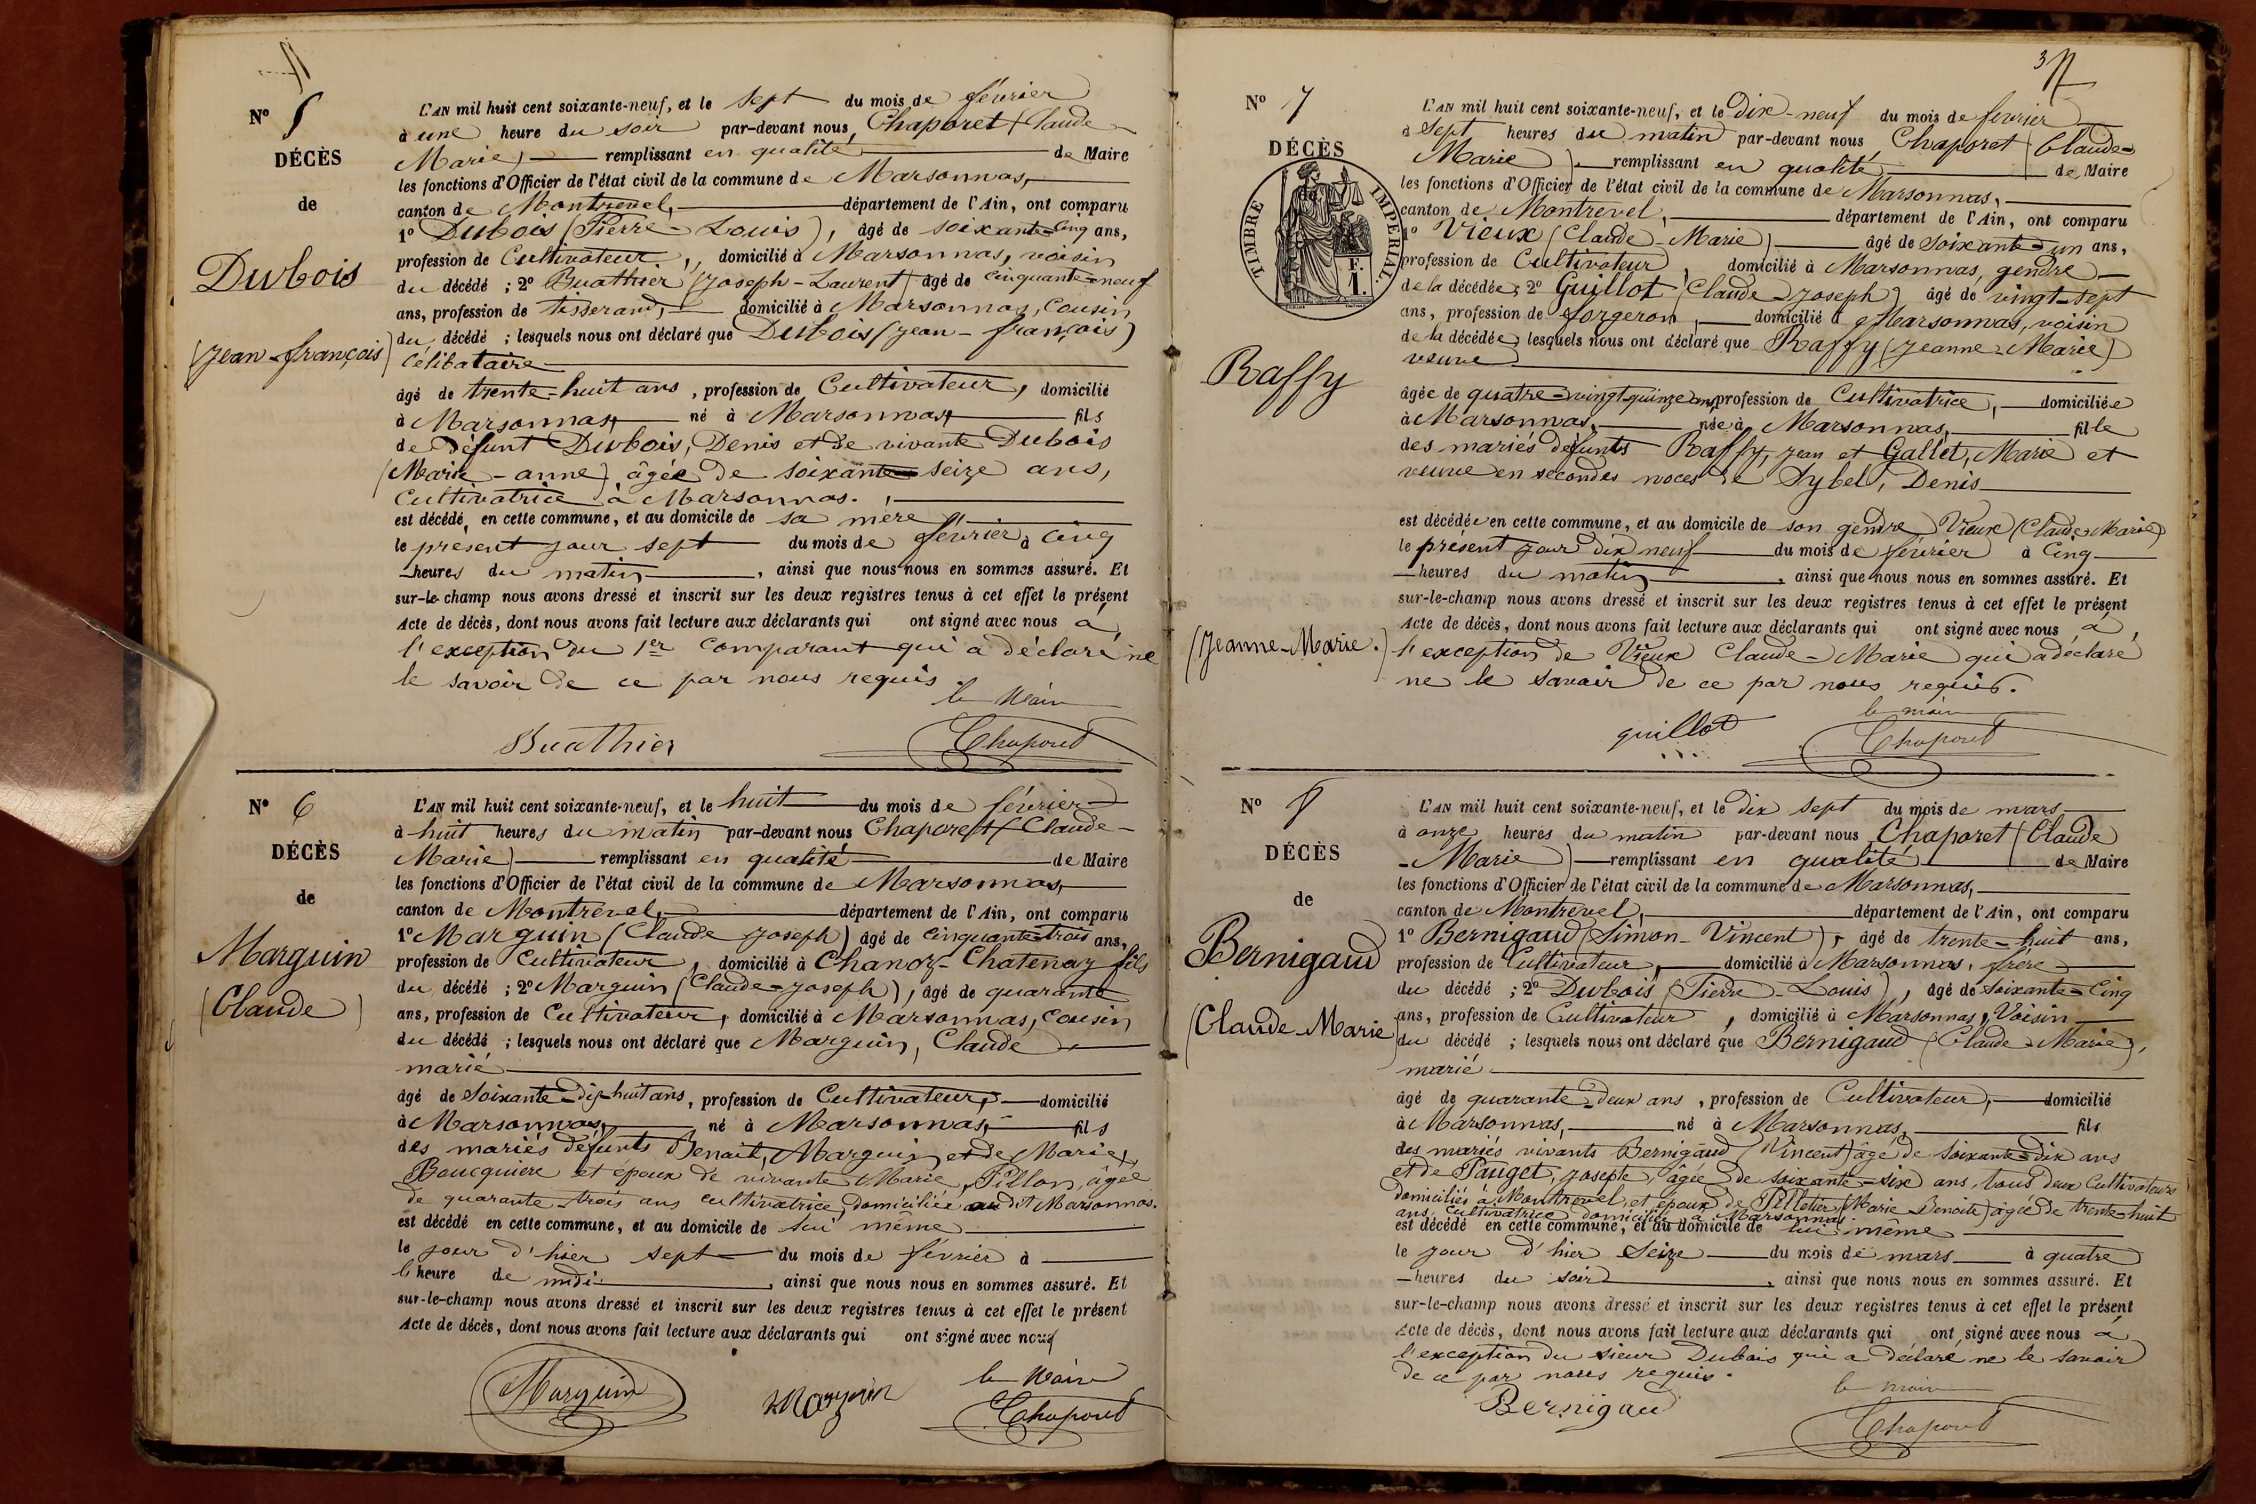 N° 5
DÉCÈS
de
Dubois
(Jean-françois)
L'AN mil huit cent soixante-neuf, et le sept du mois de février
à une heure du soir par-devant nous, Chaporet (Claude
Marie) remplissant en qualité de Maire
les fonctions d'Officier de l'état civil de la commune de Marsonnas,
canton de Montrevel, département de l'Ain, ont comparu
1° Dubois (Pierre-Louis), âgé de soixante-cinq ans,
profession de Cultivateur, domicilié à Marsonnas, voisin
du décédé ; 2° Buathier (Joseph-Laurent) âgé de cinquante-neuf
ans, profession de tisserand, domicilié à Marsonnas, cousin
du décédé ; lesquels nous ont déclaré que Dubois (Jean-françois)
célibataire
âgé de trente-huit ans, profession de Cultivateur, domicilié
à Marsonnas, né à Marsonnas, fils
de défunt Dubois, Denis et de vivante Dubois
(Marie-anne) âgée de soixante seize ans,
Cultivatrice à Marsonnas.
est décédé en cette commune, et au domicile de sa mère
le présent jour sept du mois de février à cinq
heures du matin, ainsi que nous nous en sommes assuré. Et
sur-le-champ nous avons dressé et inscrit sur les deux registres tenus à cet effet le présent
Acte de décès, dont nous avons fait lecture aux déclarants qui ont signé avec nous à
l'exception du 1er comparant qui a déclaré ne
le savoir de ce par nous requis.
le Maire
Buathier Chaporet
N° 6
DÉCÈS
de
Marguin
(Claude)
L'AN mil huit cent soixante-neuf, et le huit du mois de février
à huit heures du matin par-devant nous Chaporet (Claude-
Marie) remplissant en qualité de Maire
les fonctions d'Officier de l'état civil de la commune de Marsonnas,
canton de Montrevel, département de l'Ain, ont comparu
1° Marguin (Claude Joseph) âgé de cinquante-trois ans,
profession de Cultivateur, domicilié à Chanoz-Chatenay fils
du décédé ; 2° Marguin (Claude-Joseph), âgé de quarante
ans, profession de Cultivateur, domicilié à Marsonnas, cousin
du décédé ; lesquels nous ont déclaré que Marguin, Claude
marié
âgé de soixante-dix-huit ans, profession de Cultivateur, domicilié
à Marsonnas, né à Marsonnas, fils
des mariés défunts Benoit, Marguin et de Marie,
Boucquière et époux de vivante Marie, Pillon, âgée
de quarante-trois ans cultivatrice domiciliée au dit Marsonnas.
est décédé en cette commune, et au domicile de lui même
le jour d'hier sept du mois de février à
l'heure de midi, ainsi que nous nous en sommes assuré. Et
sur-le-champ nous avons dressé et inscrit sur les deux registres tenus à cet effet le présent
Acte de décès, dont nous avons fait lecture aux déclarants qui ont signé avec nous
le Maire
Marguin Marguin Chaporet
3
N° 7
DÉCÈS
TIMBRE IMPÉRIAL.
F.
1.
Raffy
(Jeanne-Marie.)
L'AN mil huit cent soixante-neuf, et le Dix-neuf du mois de février
à sept heures du matin par-devant nous Chaporet (Claude-
Marie) remplissant en qualité de Maire
les fonctions d'Officier de l'état civil de la commune de Marsonnas,
canton de Montrevel, département de l'Ain, ont comparu
1° Vieux (Claude-Marie) âgé de soixante-un ans,
profession de Cultivateur, domicilié à Marsonnas, gendre
de la décédée ; 2° Guillot (Claude-Joseph) âgé de vingt-sept
ans, profession de forgeron, domicilié à Marsonnas, voisin
de la décédée, lesquels nous ont déclaré que Raffy (Jeanne-Marie)
veuve
âgée de quatre-vingt-quinze ans, profession de Cultivatrice, domiciliée
à Marsonnas, née à Marsonnas, fille
des mariés défunts Raffy, Jean et Gallet, Marie et
veuve en secondes noces de Sybel, Denis
est décédée en cette commune, et au domicile de son gendre Vieux (Claude-Marie)
le présent jour dix neuf du mois de février à Cinq
heures du matin, ainsi que nous nous en sommes assuré. Et
sur-le-champ nous avons dressé et inscrit sur les deux registres tenus à cet effet le présent
Acte de décès, dont nous avons fait lecture aux déclarants qui ont signé avec nous à,
l'exception de Vieux Claude-Marie qui a déclaré
ne le savoir de ce par nous requis.
le maire
guillot Chaporet
N° 8
DÉCÈS
de
Bernigaud
(Claude-Marie)
L'AN mil huit cent soixante-neuf, et le dix sept du mois de mars
à onze heures du matin par-devant nous Chaporet (Claude
-Marie) remplissant en qualité de Maire
les fonctions d'Officier de l'état civil de la commune de Marsonnas,
canton de Montrevel, département de l'Ain, ont comparu
1° Bernigaud (Simon-Vincent), âgé de trente-huit ans,
profession de Cultivateur, domicilié à Marsonnas, frère
du décédé ; 2° Dubois (Pierre-Louis), âgé de soixante-cinq
ans, profession de Cultivateur, domicilié à Marsonnas, Voisin
du décédé ; lesquels nous ont déclaré que Bernigaud (Claude-Marie),
marié
âgé de quarante-deux ans, profession de Cultivateur, domicilié
à Marsonnas, né à Marsonnas, fils
des mariés vivants Bernigaud (Vincent) âgé de soixante-dix ans
et de Pauget, Josepte, âgée de soixante-six ans, tous deux Cultivateurs
domiciliés à Montrevel, et époux de Pelletier (Marie Benoite) âgée de trente-huit
ans, cultivatrice domiciliée à Marsonnas
est décédé en cette commune, et au domicile de lui même
le jour d'hier seize du mois de mars à quatre
heures du soir, ainsi que nous nous en sommes assuré. Et
sur-le-champ nous avons dressé et inscrit sur les deux registres tenus à cet effet le présent
Acte de décès, dont nous avons fait lecture aux déclarants qui ont signé avec nous à
l'exception du sieur Dubois qui a déclaré ne le savoir
de ce par nous requis.
le maire
Bernigaud Chaporet